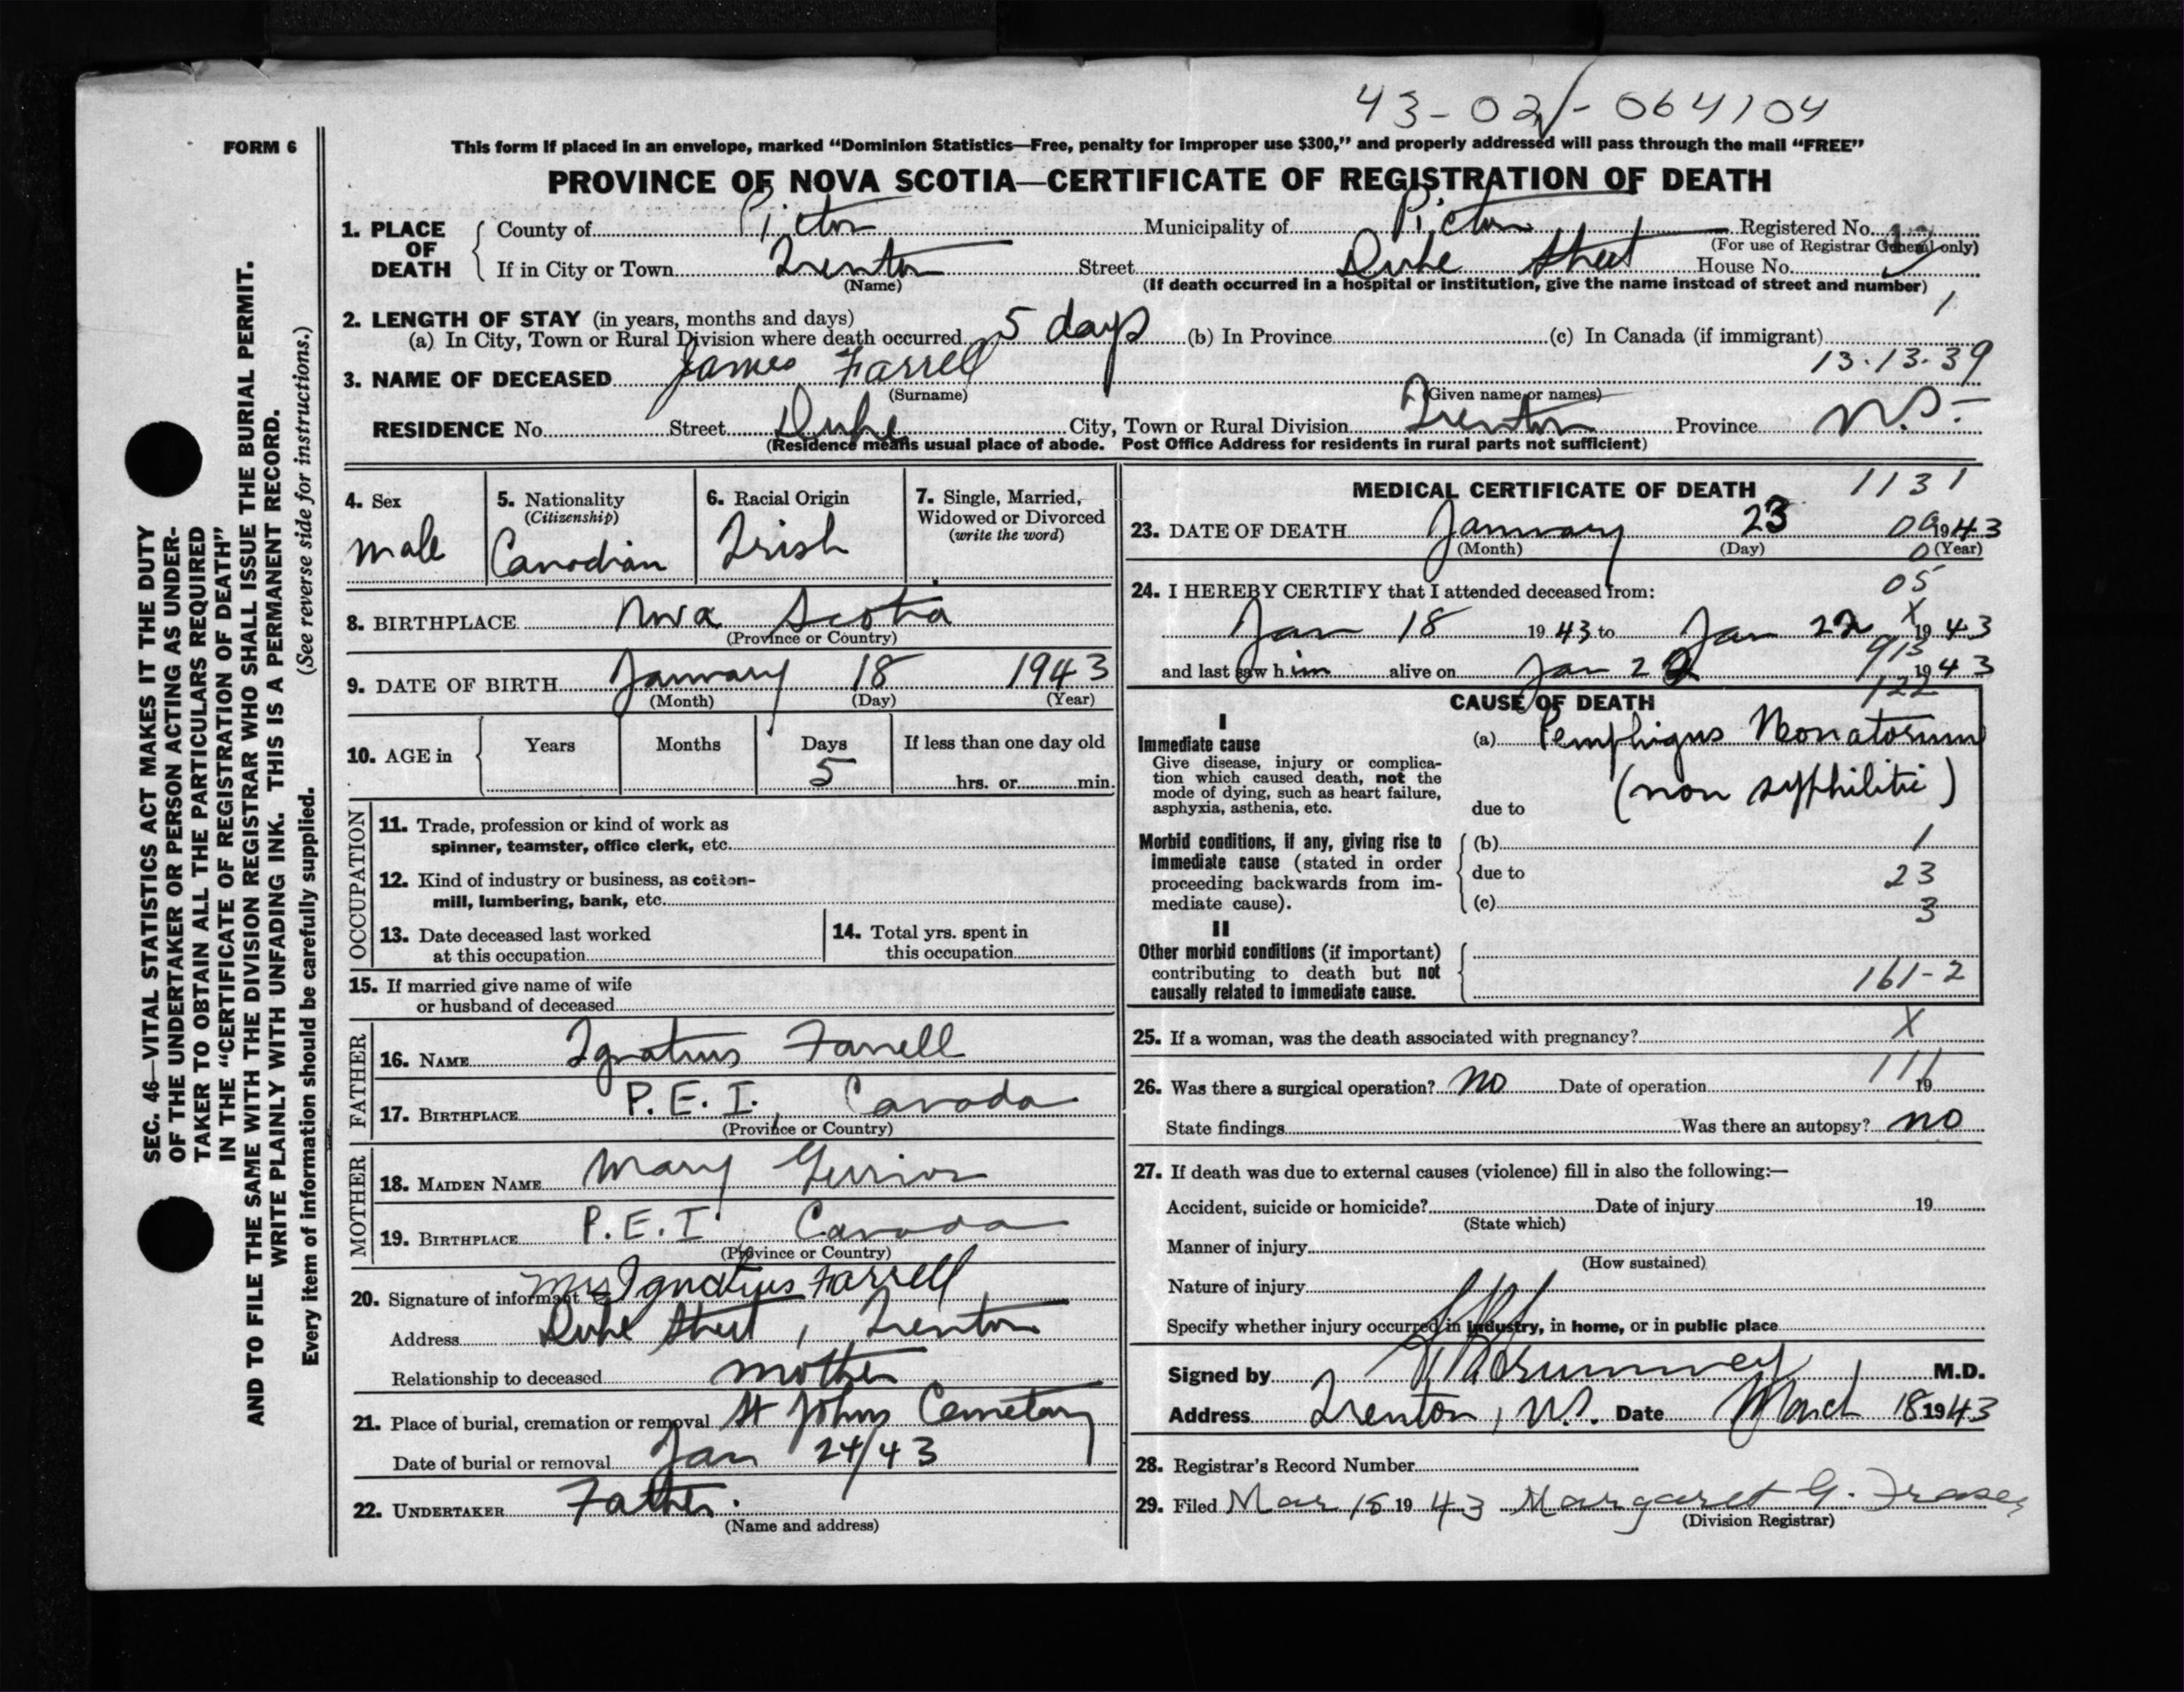 43-02-064104
FORM 6
This form if placed in an envelope, marked “Dominion Statistics—Free, penalty for improper use $300,” and properly addressed will pass through the mail “FREE”
PROVINCE OF NOVA SCOTIA—CERTIFICATE OF REGISTRATION OF DEATH
1. PLACE OF DEATH County of Pictou Municipality of Pictou Registered No.
(For use of Registrar General only)
If in City or Town Trenton Street Duke Street House No.
(Name) (If death occurred in a hospital or institution, give the name instead of street and number)
1
2. LENGTH OF STAY (in years, months and days)
(a) In City, Town or Rural Division where death occurred 5 days (b) In Province (c) In Canada (if immigrant)
13-13-39
3. NAME OF DECEASED James Farrell
(Surname) (Given name or names)
RESIDENCE No. Street Duke City, Town or Rural Division Trenton Province N.S.
(Residence means usual place of abode. Post Office Address for residents in rural parts not sufficient)
4. Sex male
5. Nationality (Citizenship) Canadian
6. Racial Origin Irish
7. Single, Married, Widowed or Divorced (write the word)
8. BIRTHPLACE Nova Scotia
(Province or Country)
9. DATE OF BIRTH January 18 1943
(Month) (Day) (Year)
10. AGE in Years Months Days If less than one day old
5 hrs. or min.
OCCUPATION
11. Trade, profession or kind of work as
spinner, teamster, office clerk, etc.
12. Kind of industry or business, as cotton-
mill, lumbering, bank, etc.
13. Date deceased last worked
at this occupation
14. Total yrs. spent in
this occupation
15. If married give name of wife
or husband of deceased
FATHER
16. NAME Ignatius Farrell
17. BIRTHPLACE P.E.I., Canada
(Province or Country)
MOTHER
18. MAIDEN NAME Mary
19. BIRTHPLACE P.E.I. Canada
(Province or Country)
20. Signature of informant Mrs Ignatius Farrell
Address Duke Street, Trenton
Relationship to deceased mother
21. Place of burial, cremation or removal St Johns Cemetary
Date of burial or removal Jan 24/43
22. UNDERTAKER Father.
(Name and address)
MEDICAL CERTIFICATE OF DEATH 1131
23. DATE OF DEATH January 23 1943
(Month) (Day) (Year)
0
05
24. I HEREBY CERTIFY that I attended deceased from:
X
Jan 18 1943 to Jan 22 1943
913
and last saw him alive on Jan 22 1943
122
CAUSE OF DEATH
I
Immediate cause
Give disease, injury or complica-
tion which caused death, not the
mode of dying, such as heart failure,
asphyxia, asthenia, etc.
(a) Pemphigus Neonatorum
(non syphilitic)
due to
Morbid conditions, if any, giving rise to
immediate cause (stated in order
proceeding backwards from im-
mediate cause).
(b) 1
due to 23
(c) 3
II
Other morbid conditions (if important)
contributing to death but not
causally related to immediate cause.
161-2
25. If a woman, was the death associated with pregnancy? X
111
26. Was there a surgical operation? No Date of operation 19
State findings Was there an autopsy? no
27. If death was due to external causes (violence) fill in also the following:—
Accident, suicide or homicide? Date of injury 19
(State which)
Manner of injury
(How sustained)
Nature of injury
Specify whether injury occurred in industry, in home, or in public place
Signed by M.D.
Address Trenton, N.S. Date March 18 1943
28. Registrar's Record Number
29. Filed Mar 18 1943 Margaret G. Fraser
(Division Registrar)
SEC. 46—VITAL STATISTICS ACT MAKES IT THE DUTY
OF THE UNDERTAKER OR PERSON ACTING AS UNDER-
TAKER TO OBTAIN ALL THE PARTICULARS REQUIRED
IN THE “CERTIFICATE OF REGISTRATION OF DEATH”
AND TO FILE THE SAME WITH THE DIVISION REGISTRAR WHO SHALL ISSUE THE BURIAL PERMIT.
WRITE PLAINLY WITH UNFADING INK. THIS IS A PERMANENT RECORD.
Every item of information should be carefully supplied. (See reverse side for instructions.)